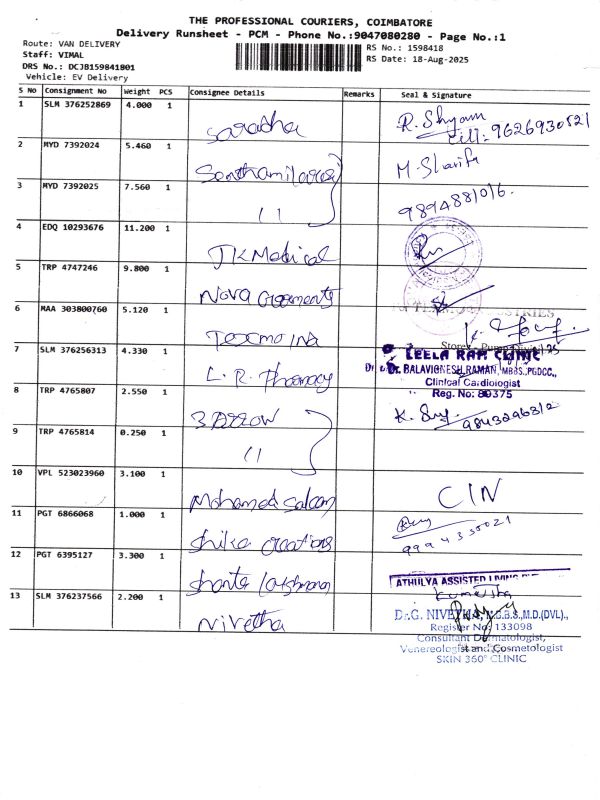 THE PROFESSIONAL COURIERS, COIMBATORE
Delivery Runsheet - PCM - Phone No.:9047080280 - Page No.:1
Route: VAN DELIVERY
Staff: VIMAL
DRS No.: DCJB159841801
Vehicle: EV Delivery
RS No.: 1598418
RS Date: 18-Aug-2025
S No Consignment No Weight PCS Consignee Details Remarks Seal & Signature
1 SLM 376252869 4.000 1 R. Shyam
cell: 9626930521
2 MYD 7392024 5.460 1 M. Sharifa
3 MYD 7392025 7.560 1 11 9894881016.
4 EDQ 10293676 11.200 1 JK Medical
5 TRP 4747246 9.800 1 Nova Garments
6 MAA 303800760 5.120 1 Texmo Ind
7 SLM 376256313 4.330 1 L. R. Pharmacy
LEELA RAM CLINIC
Dr. BALAVIGNESH RAMAN, MBBS., PGDCC.,
Clinical Cardiologist
Reg. No: 80375
8 TRP 4765807 2.550 1 3 Arrow K.
9843296312
9 TRP 4765814 0.250 1 11
10 VPL 523023960 3.100 1 Mohamed Salam CIN
11 PGT 6866068 1.000 1 Shika Creations
9994330021
12 PGT 6395127 3.300 1
ATHULYA ASSISTED LIVING
13 SLM 376237566 2.200 1 Nivetha
Dr.G. NIVETHA, M.B.B.S.,M.D.(DVL).,
Register No: 133098
Consultant Dermatologist,
Venereologist and Cosmetologist
SKIN 360° CLINIC